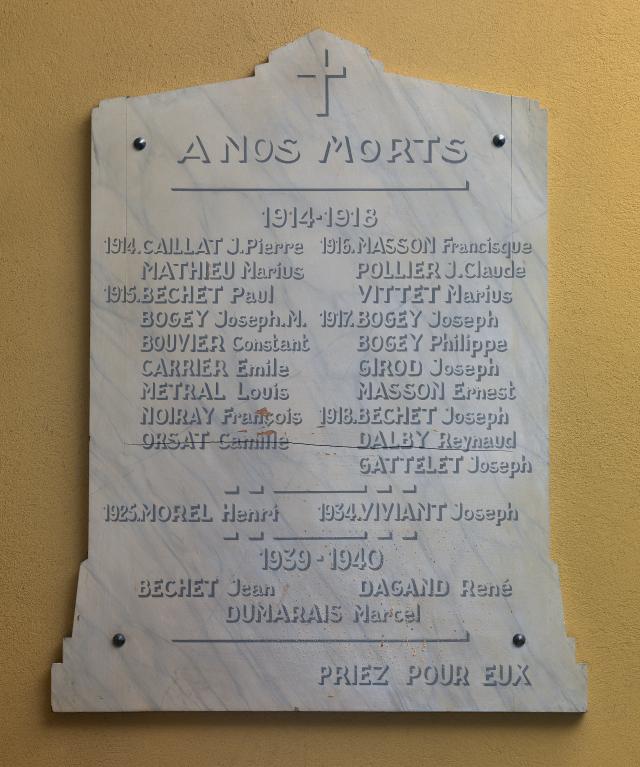 A NOS MORTS
1914-1918
1914.CAILLAT J.Pierre 1916.MASSON Francisque
MATHIEU Marius POLLIER J.Claude
1915.BECHET Paul VITTET Marius
BOGEY Joseph.M. 1917.BOGEY Joseph
BOUVIER Constant BOGEY Philippe
CARRIER Emile GIROD Joseph
METRAL Louis MASSON Ernest
NOIRAY François 1918.BECHET Joseph
ORSAT Camille DALBY Reynaud
GATTELET Joseph
1925.MOREL Henri 1934.VIVIANT Joseph
1939-1940
BECHET Jean DAGAND René
DUMARAIS Marcel
PRIEZ POUR EUX